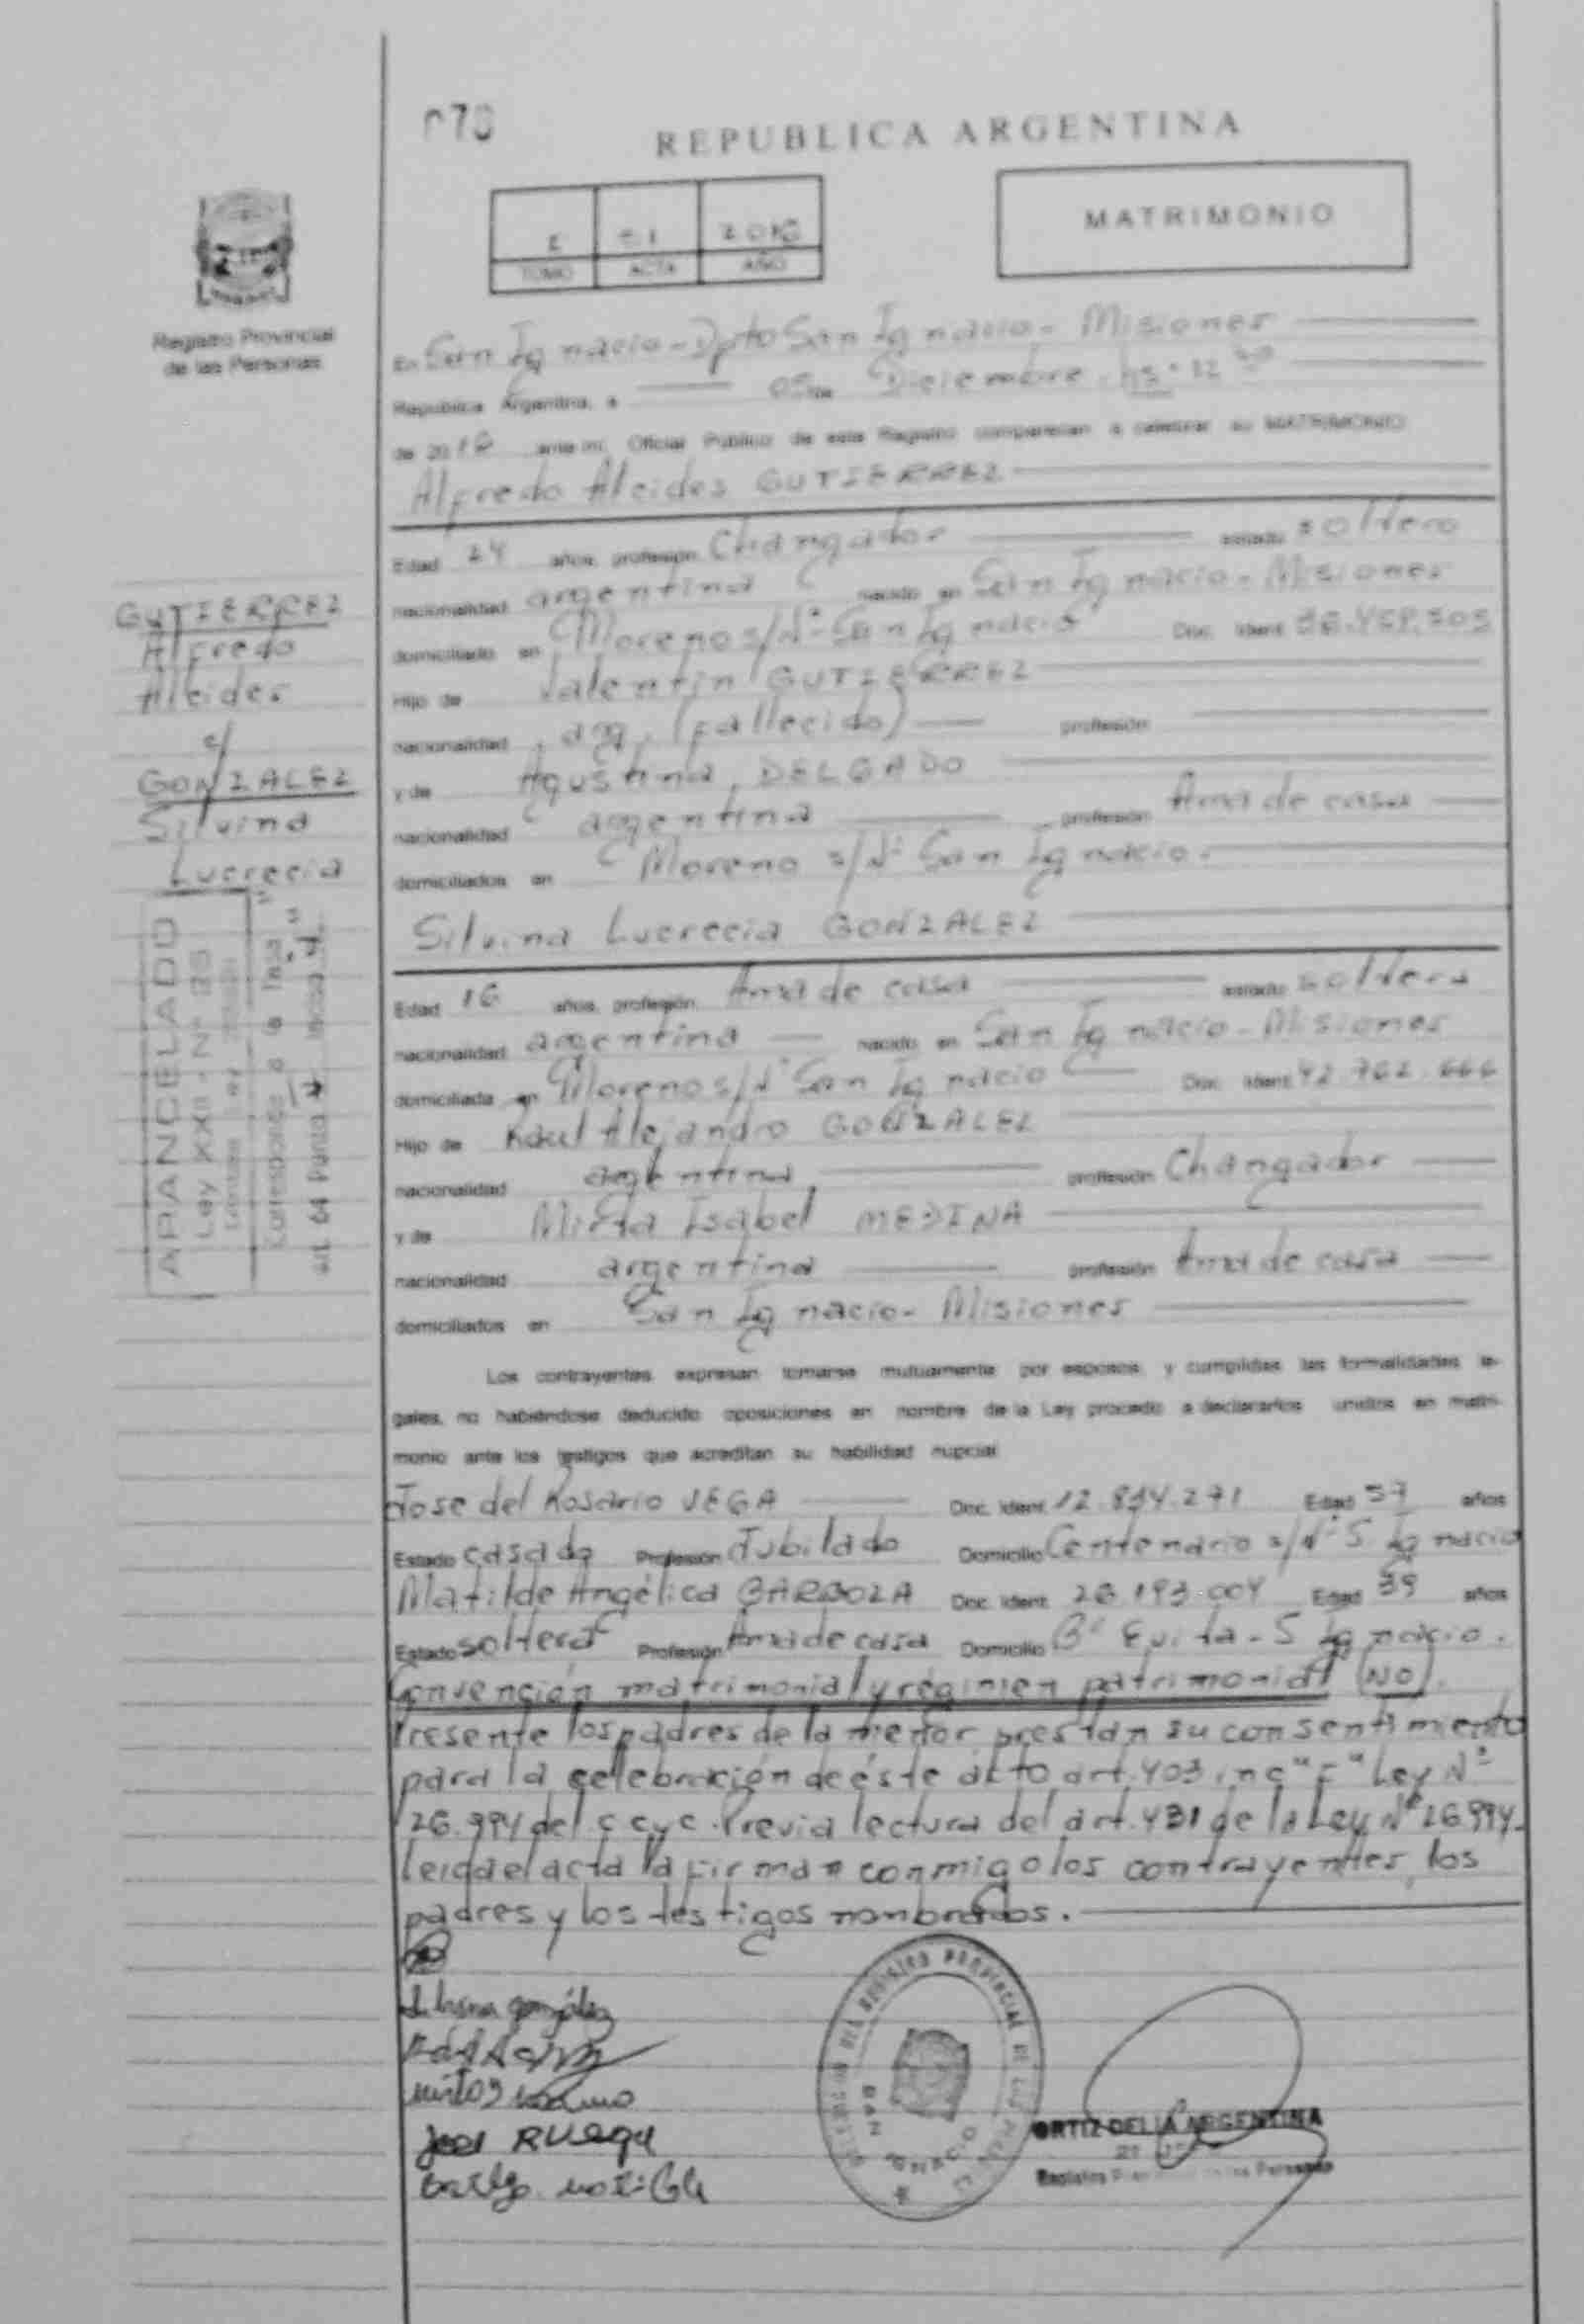 REPUBLICA ARGENTINA
MATRIMONIO
TOMO ACTA AÑO
Registro Provincial
de las Personas
En San Ignacio - Dpto San Ignacio - Misiones
Republica Argentina, a 05 de Diciembre hs. 12
de 2016 ante mi, Oficial Público de este Registro comparecen a celebrar su MATRIMONIO
Alfredo Alcides GUTIERREZ
Edad 24 años, profesión Changador estado soltero
nacionalidad argentina nacido en San Ignacio - Misiones
domiciliado en Moreno s/Nº San Ignacio Doc. Ident.
Hijo de Valentin GUTIERREZ
nacionalidad arg. (fallecido) profesión
y de Agustina DELGADO
nacionalidad argentina profesión Ama de casa
domiciliados en Moreno s/Nº San Ignacio.
Silvina Lucrecia GONZALEZ
Edad 16 años, profesión Ama de casa estado soltera
nacionalidad argentina nacido en San Ignacio - Misiones
domiciliada en Moreno s/Nº San Ignacio Doc. Ident. 42.762.666
Hijo de Raul Alejandro GONZALEZ
nacionalidad argentina profesión Changador
y de Mirta Isabel MEDINA
nacionalidad argentina profesión Ama de casa
domiciliados en San Ignacio - Misiones
Los contrayentes expresan tomarse mutuamente por esposos y cumplidas las formalidades le-
gales, no habiéndose deducido oposiciones en nombre de la Ley procedo a declararlos unidos en matri-
monio ante los testigos que acreditan su habilidad nupcial
Jose del Rosario VEGA Doc. Ident. Edad 57 años
Estado casado Profesión Jubilado Domicilio Centenario s/Nº S Ignacio
Matilde Angélica BARBOZA Doc. Ident. 26.193.004 Edad 39 años
Estado soltera Profesión Ama de casa Domicilio Bº Evita - S Ignacio.
Convención matrimonial y régimien patrimonial (NO).
Presente los padres de la menor prestan su consentimiento
para la celebración de éste acto art. 403 inc "F" Ley Nº
26.994 del C C y C. Previa lectura del art. 431 de la Ley Nº 26994.
Leida el acta la firman conmigo los contrayentes, los
padres y los testigos nombrados.
GUTIERREZ
Alfredo
Alcides
c/
GONZALEZ
Silvina
Lucrecia
APANCELADO
Ley XXII - Nº 25
Corresponde a la Tasa
ORTIZ DELIA ARGENTINA
SAN IGNACIO